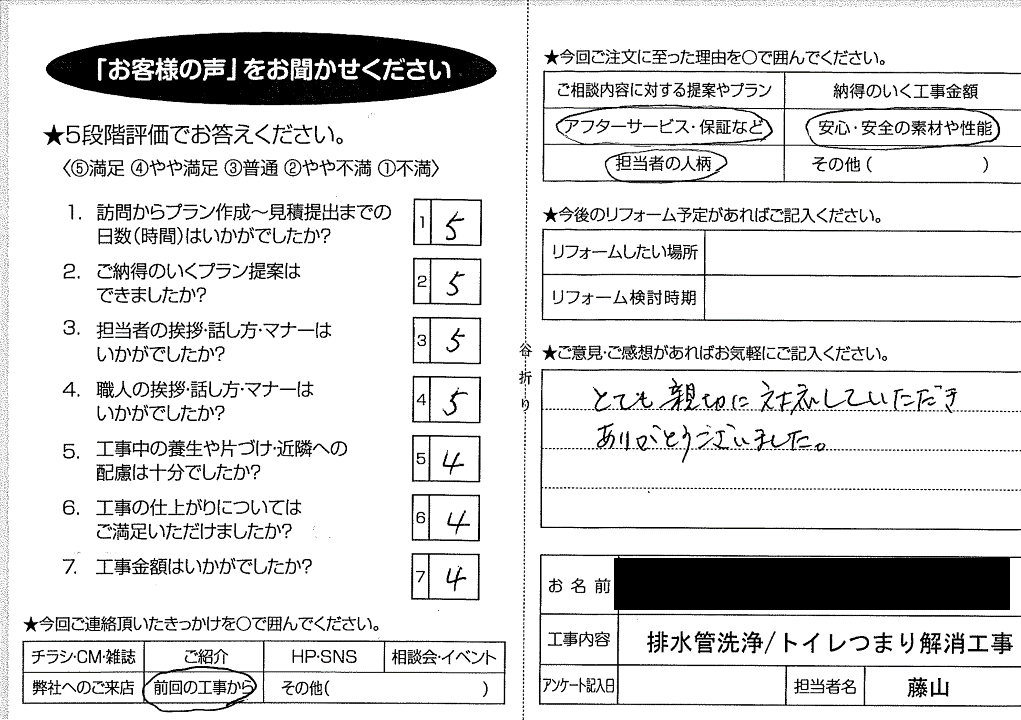 「お客様の声」をお聞かせください
★5段階評価でお答えください。
〈⑤満足 ④やや満足 ③普通 ②やや不満 ①不満〉
1. 訪問からプラン作成～見積提出までの
日数(時間)はいかがでしたか?
1 5
2. ご納得のいくプラン提案は
できましたか?
2 5
3. 担当者の挨拶・話し方・マナーは
いかがでしたか?
3 5
4. 職人の挨拶・話し方・マナーは
いかがでしたか?
4 5
5. 工事中の養生や片づけ・近隣への
配慮は十分でしたか?
5 4
6. 工事の仕上がりについては
ご満足いただけましたか?
6 4
7. 工事金額はいかがでしたか?
7 4
★今回ご連絡頂いたきっかけを〇で囲んでください。
チラシ・CM・雑誌 ご紹介 HP・SNS 相談会・イベント
弊社へのご来店 前回の工事から その他( )
谷折り
★今回ご注文に至った理由を〇で囲んでください。
ご相談内容に対する提案やプラン 納得のいく工事金額
アフターサービス・保証など 安心・安全の素材や性能
担当者の人柄 その他( )
★今後のリフォーム予定があればご記入ください。
リフォームしたい場所
リフォーム検討時期
★ご意見・ご感想があればお気軽にご記入ください。
とても親切に対応していただき
ありがとうございました。
お名前
工事内容 排水管洗浄/トイレつまり解消工事
アンケート記入日 担当者名 藤山